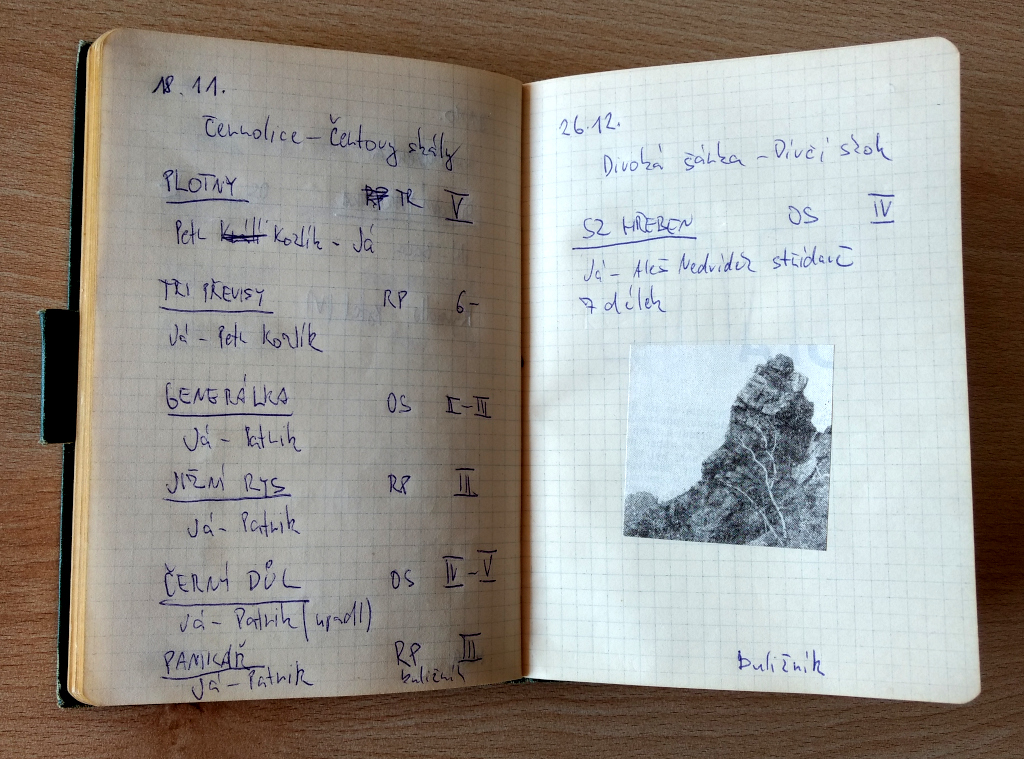 18.11.
Černolice - Čertovy skály
PLOTNY TR V
Petr Kozlík - Já
TŘI PŘEVISY RP 6-
Já - Petr Kozlík
GENERÁLKA OS II-III
Já - Patrik
JIŽNÍ RYS RP III
Já - Patrik
ČERNÝ DŮL OS IV-V
Já - Patrik (upadl)
PANIKÁŘ RP III
Já - Patrik buližník
26.12.
Divoká šárka - Dívčí skok
SZ HŘEBEN OS IV
Já - Aleš Nedvídek střídavě
7 délek
buližník